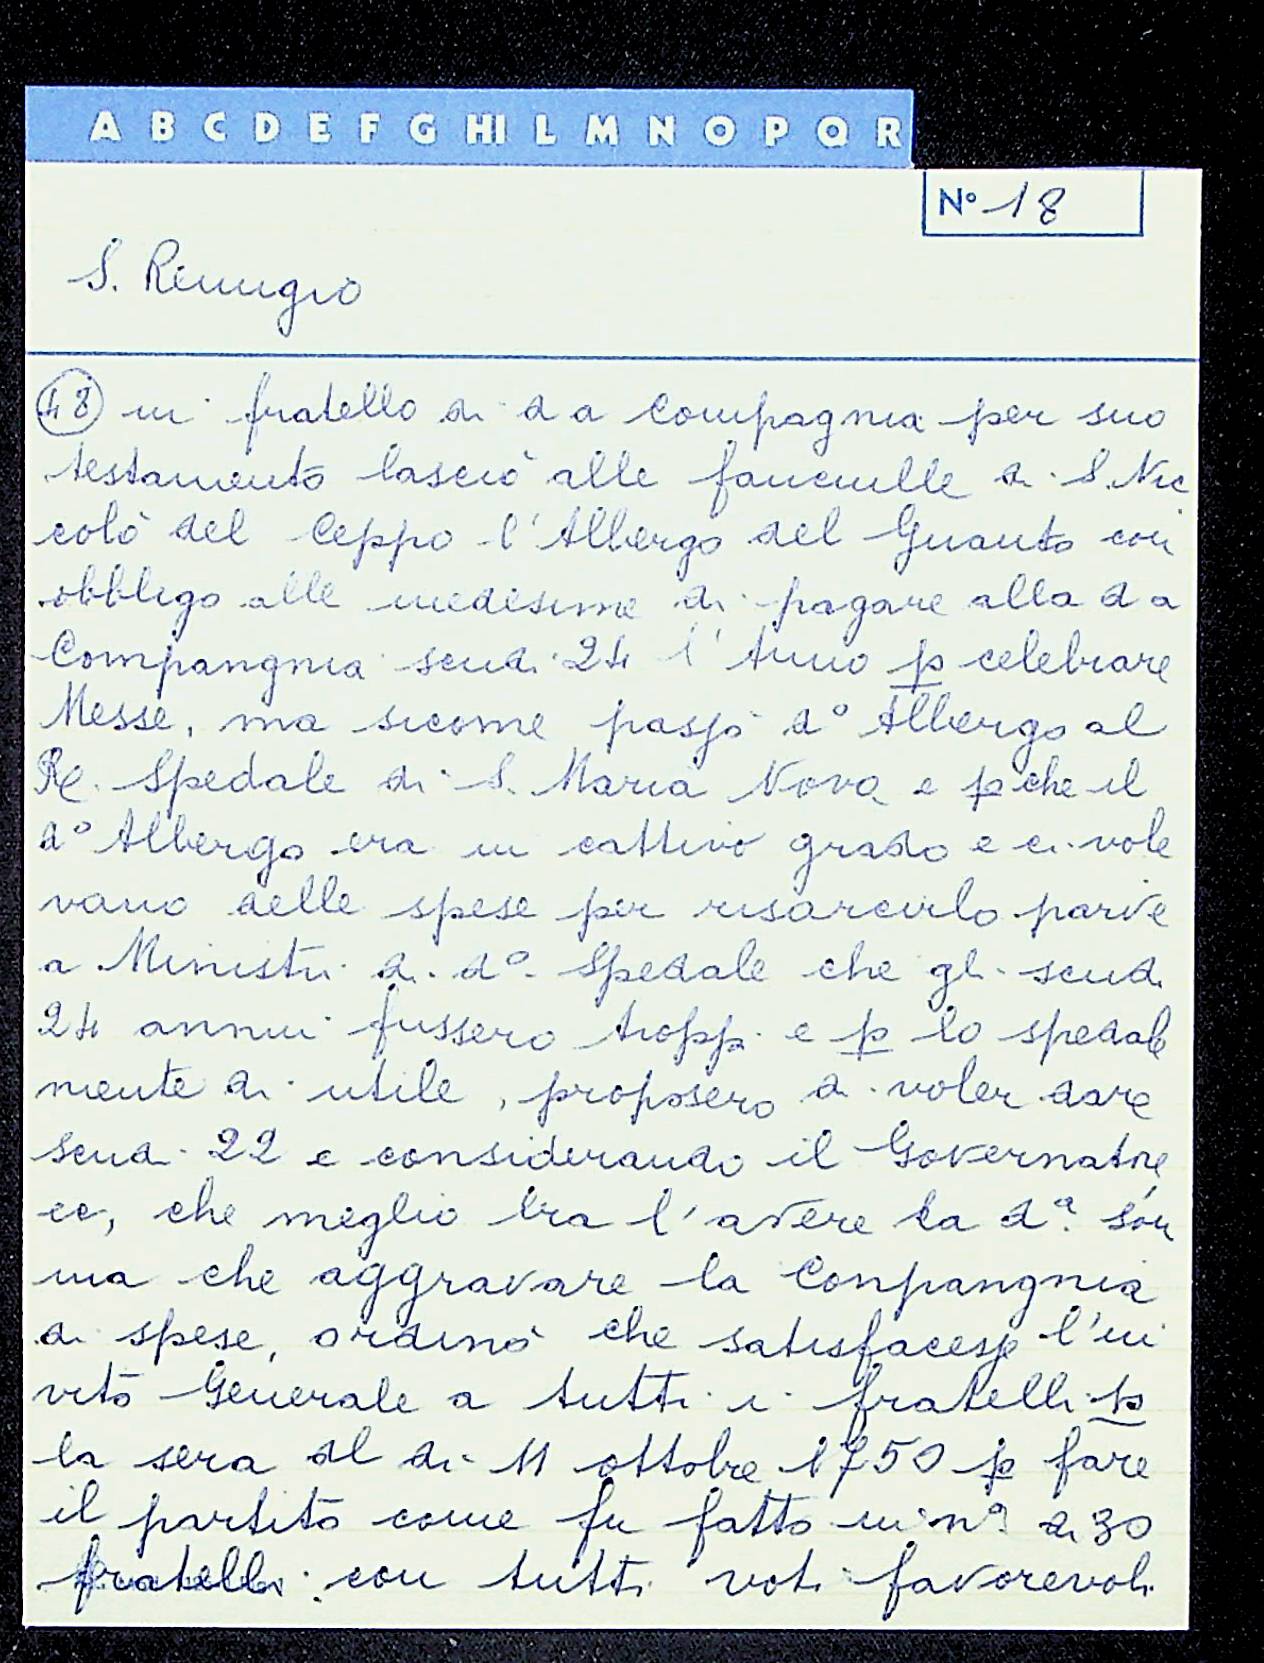 A B C D E F G HI L M N O P Q R
N° 18
S. Remigio
48 un fratello di da Compagnia per suo
testamento lasciò alle fanciulle di S. Nic
colò del Ceppo l'Albergo del Guanto con
obbligo alle medesime di pagare alla da
Compangnia scudi 24 l'Anno p celebrare
Messe, ma sicome passò d° Albergo al
R. Spedale di S. Maria Nova e pche il
d° Albergo era in cattivo grado e ci vole
vano delle spese per risarcirlo parve
a Ministri di d° Spedale che gli scudi
24 annui fussero troppi e p lo spedal
mente di utile, proposero di voler dare
scudi 22 e considerando il Governatore
ec, che meglio era l'avere la dª som
ma che aggravare la Conpangnia
di spese, ordinò che satisfacesse l'in
vito Generale a tutti i fratelli p
la sera del di 11 ottobre 1750 p fare
il partito come fu fatto in n° di 30
fratelli con tutti voti favorevoli